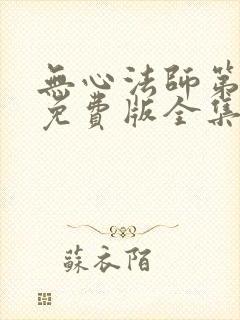 無心法師第
免費版全集
蘇衣陌